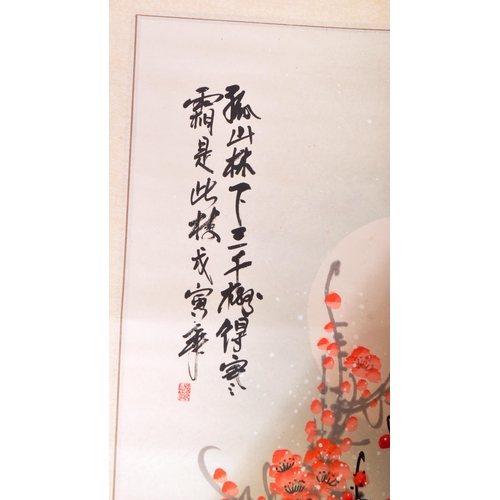 孤山林下三千樹得寒
霜是此枝戊寅年